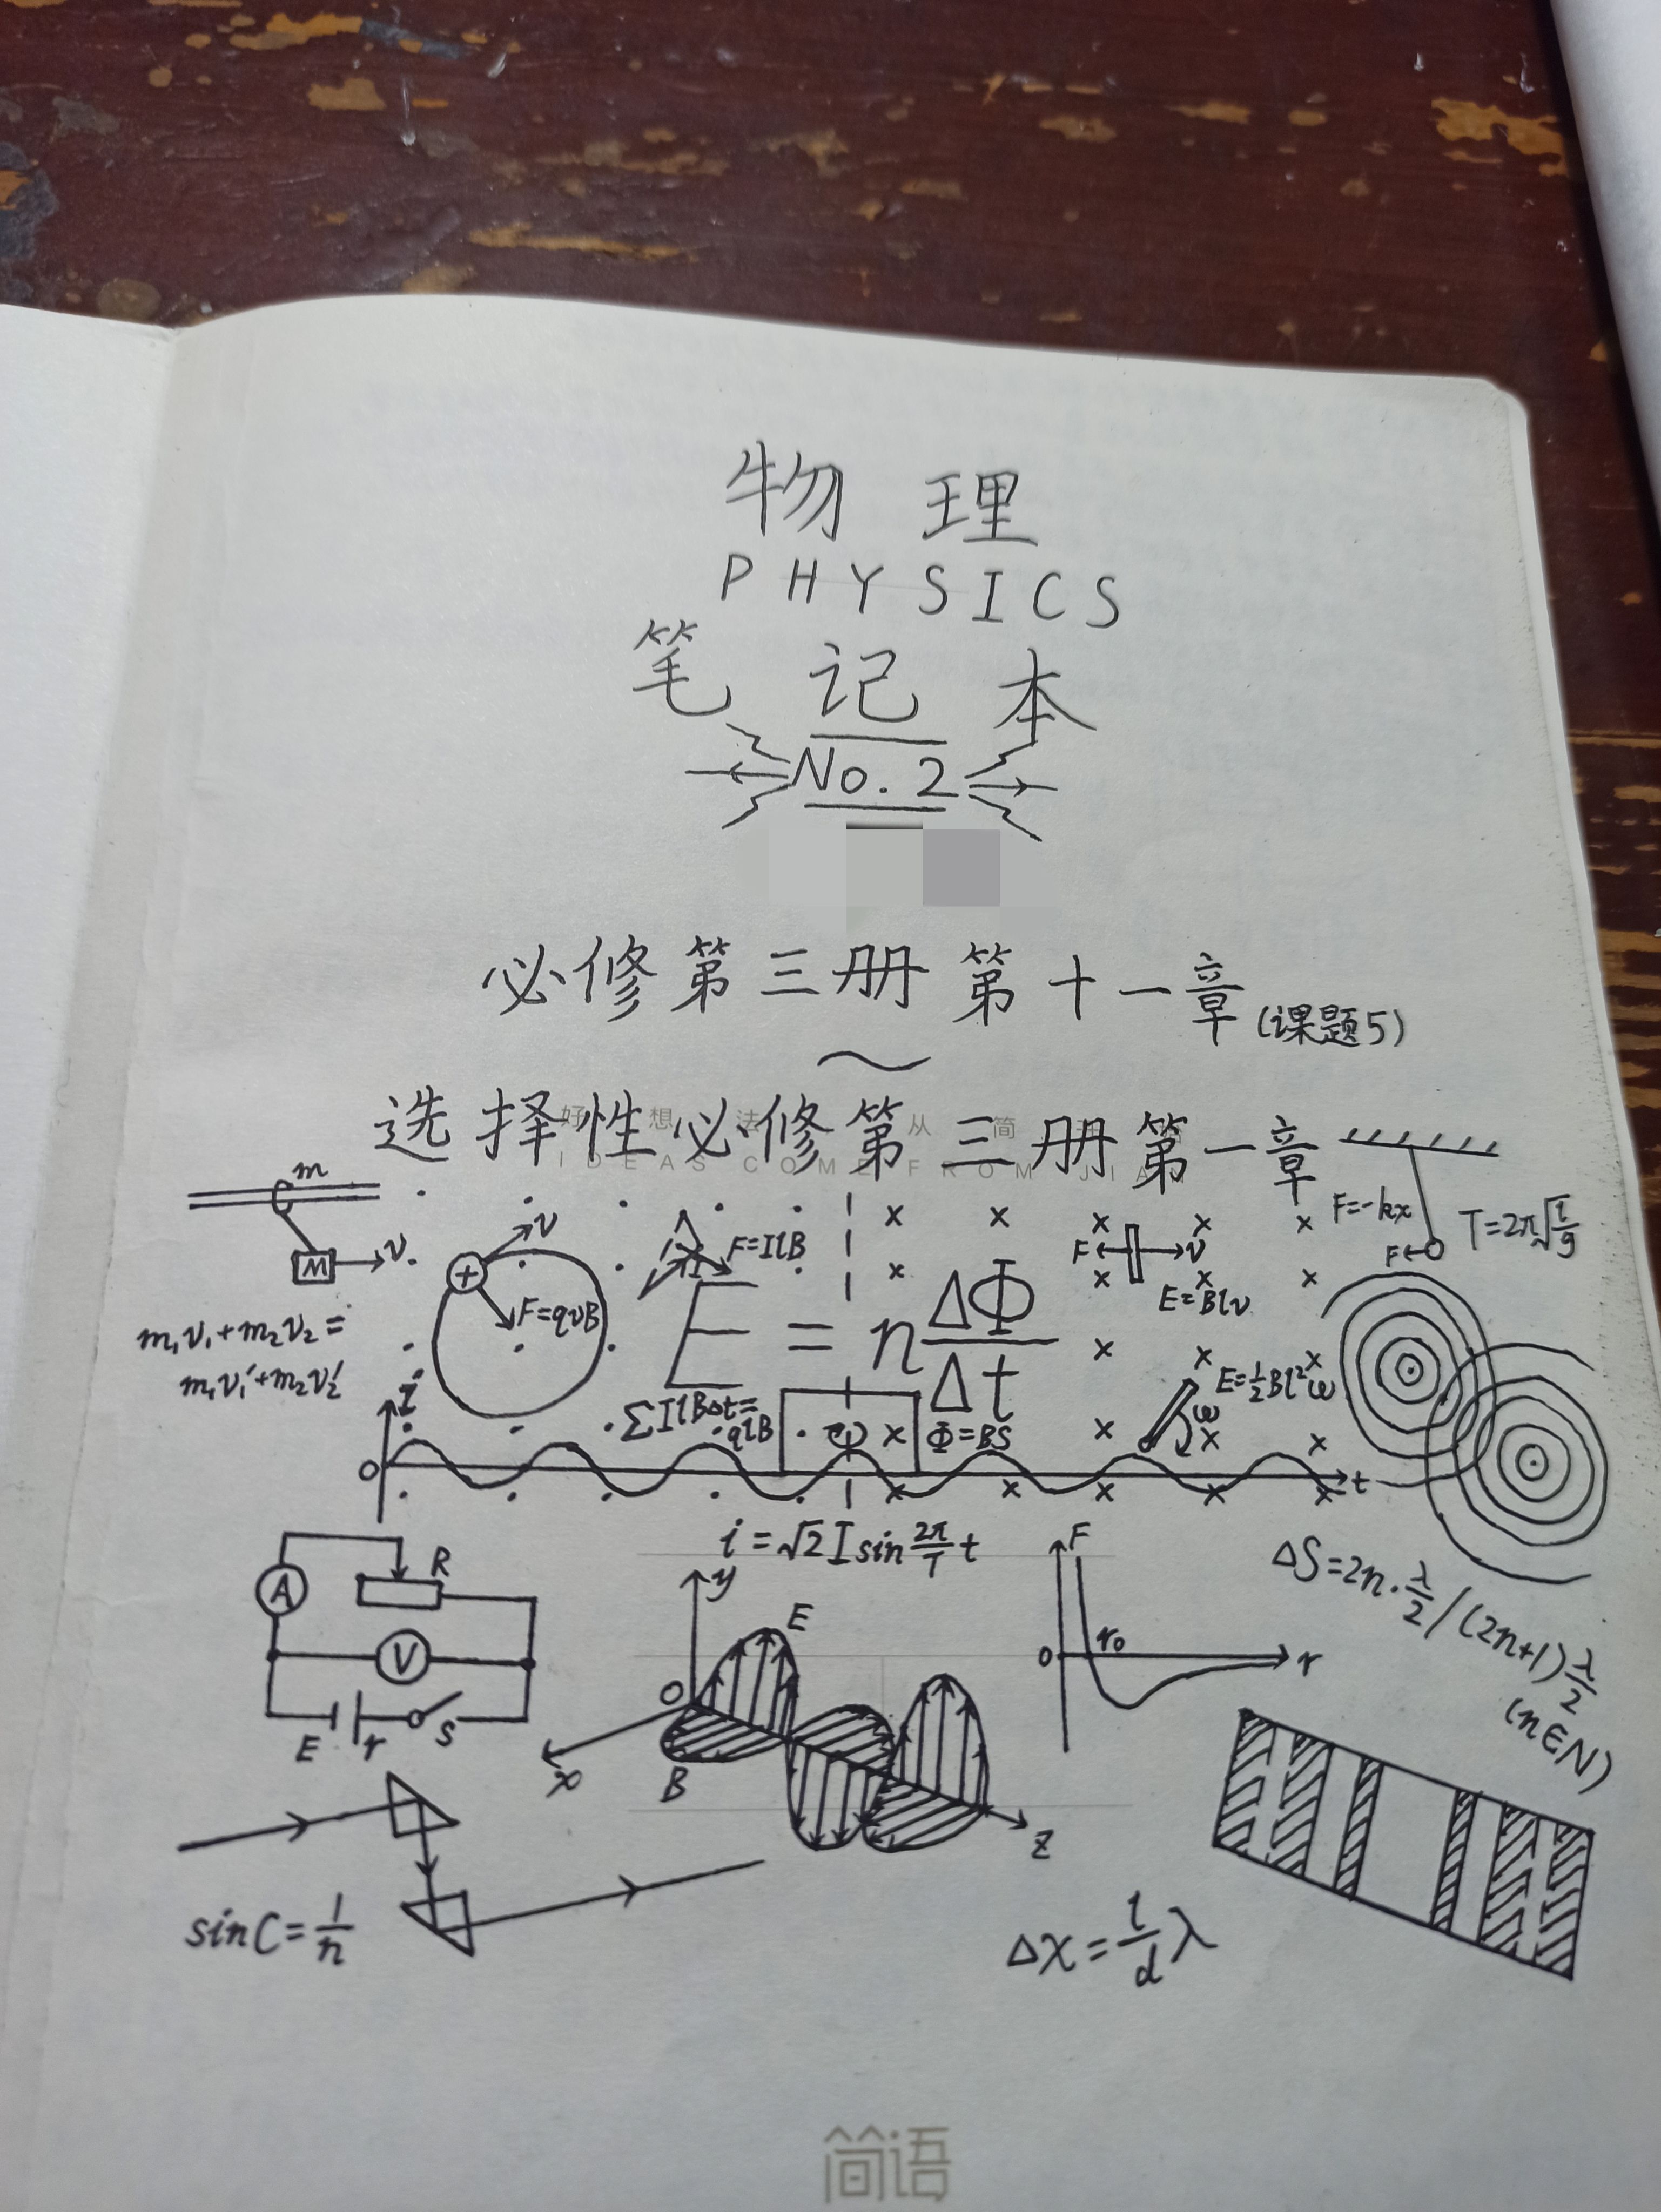 物理
PHYSICS
笔记本
No. 2
必修第三册第十一章(课题5)
~
选择性必修第三册第一章
好 想 法 从 简
IDEAS COME FROM JIA
m
M
v
m₁v₁+m₂v₂=
m₁v₁'+m₂v₂'
v
+
F=qvB
I
F=IlB
E=n ΔΦ/Δt
F
v
E=Blv
F=-kx
F
T=2π√(l/g)
E=½Bl²ω
ω
∑IlBΔt=
qlB
Φ=BS
i
O
t
i=√2 I sin 2π/T t
A
R
V
E
r
S
y
E
O
x
B
z
F
O
r₀
r
ΔS=2n·λ/2 / (2n+1)λ/2
(n∈N)
sinC=1/n
Δx=l/d λ
简语